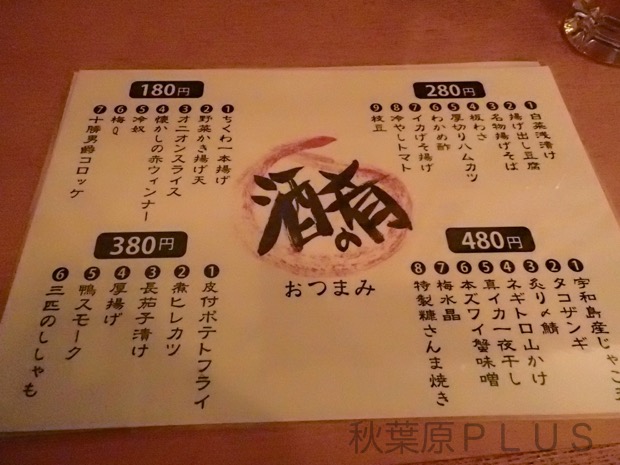 180円
❶ちくわ一本揚げ
❷野菜かき揚げ天
❸オニオンスライス
❹懐かしの赤ウィンナー
❺冷奴
❻梅Q
❼十勝男爵コロッケ
280円
❶白菜浅漬け
❷揚げ出し豆腐
❸名物揚げそば
❹板わさ
❺厚切りハムカツ
❻わかめ酢
❼イカげそ揚げ
❽冷やしトマト
❾枝豆
酒の肴
おつまみ
380円
❶皮付ポテトフライ
❷煮ヒレカツ
❸長茄子漬け
❹厚揚げ
❺鴨スモーク
❻三匹のししゃも
480円
❶宇和島産じゃこ天
❷タコザンギ
❸炙り〆鯖
❹ネギトロ山かけ
❺真イカ一夜干し
❻本ズワイ蟹味噌
❼梅水晶
❽特製糠さんま焼き
秋葉原PLUS